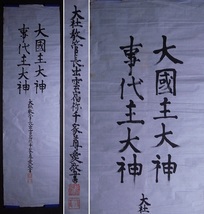 大國主大神
事代主大神
大社教管長出雲宿祢千家尊愛敬書
大國主大神
事代主大神
大社